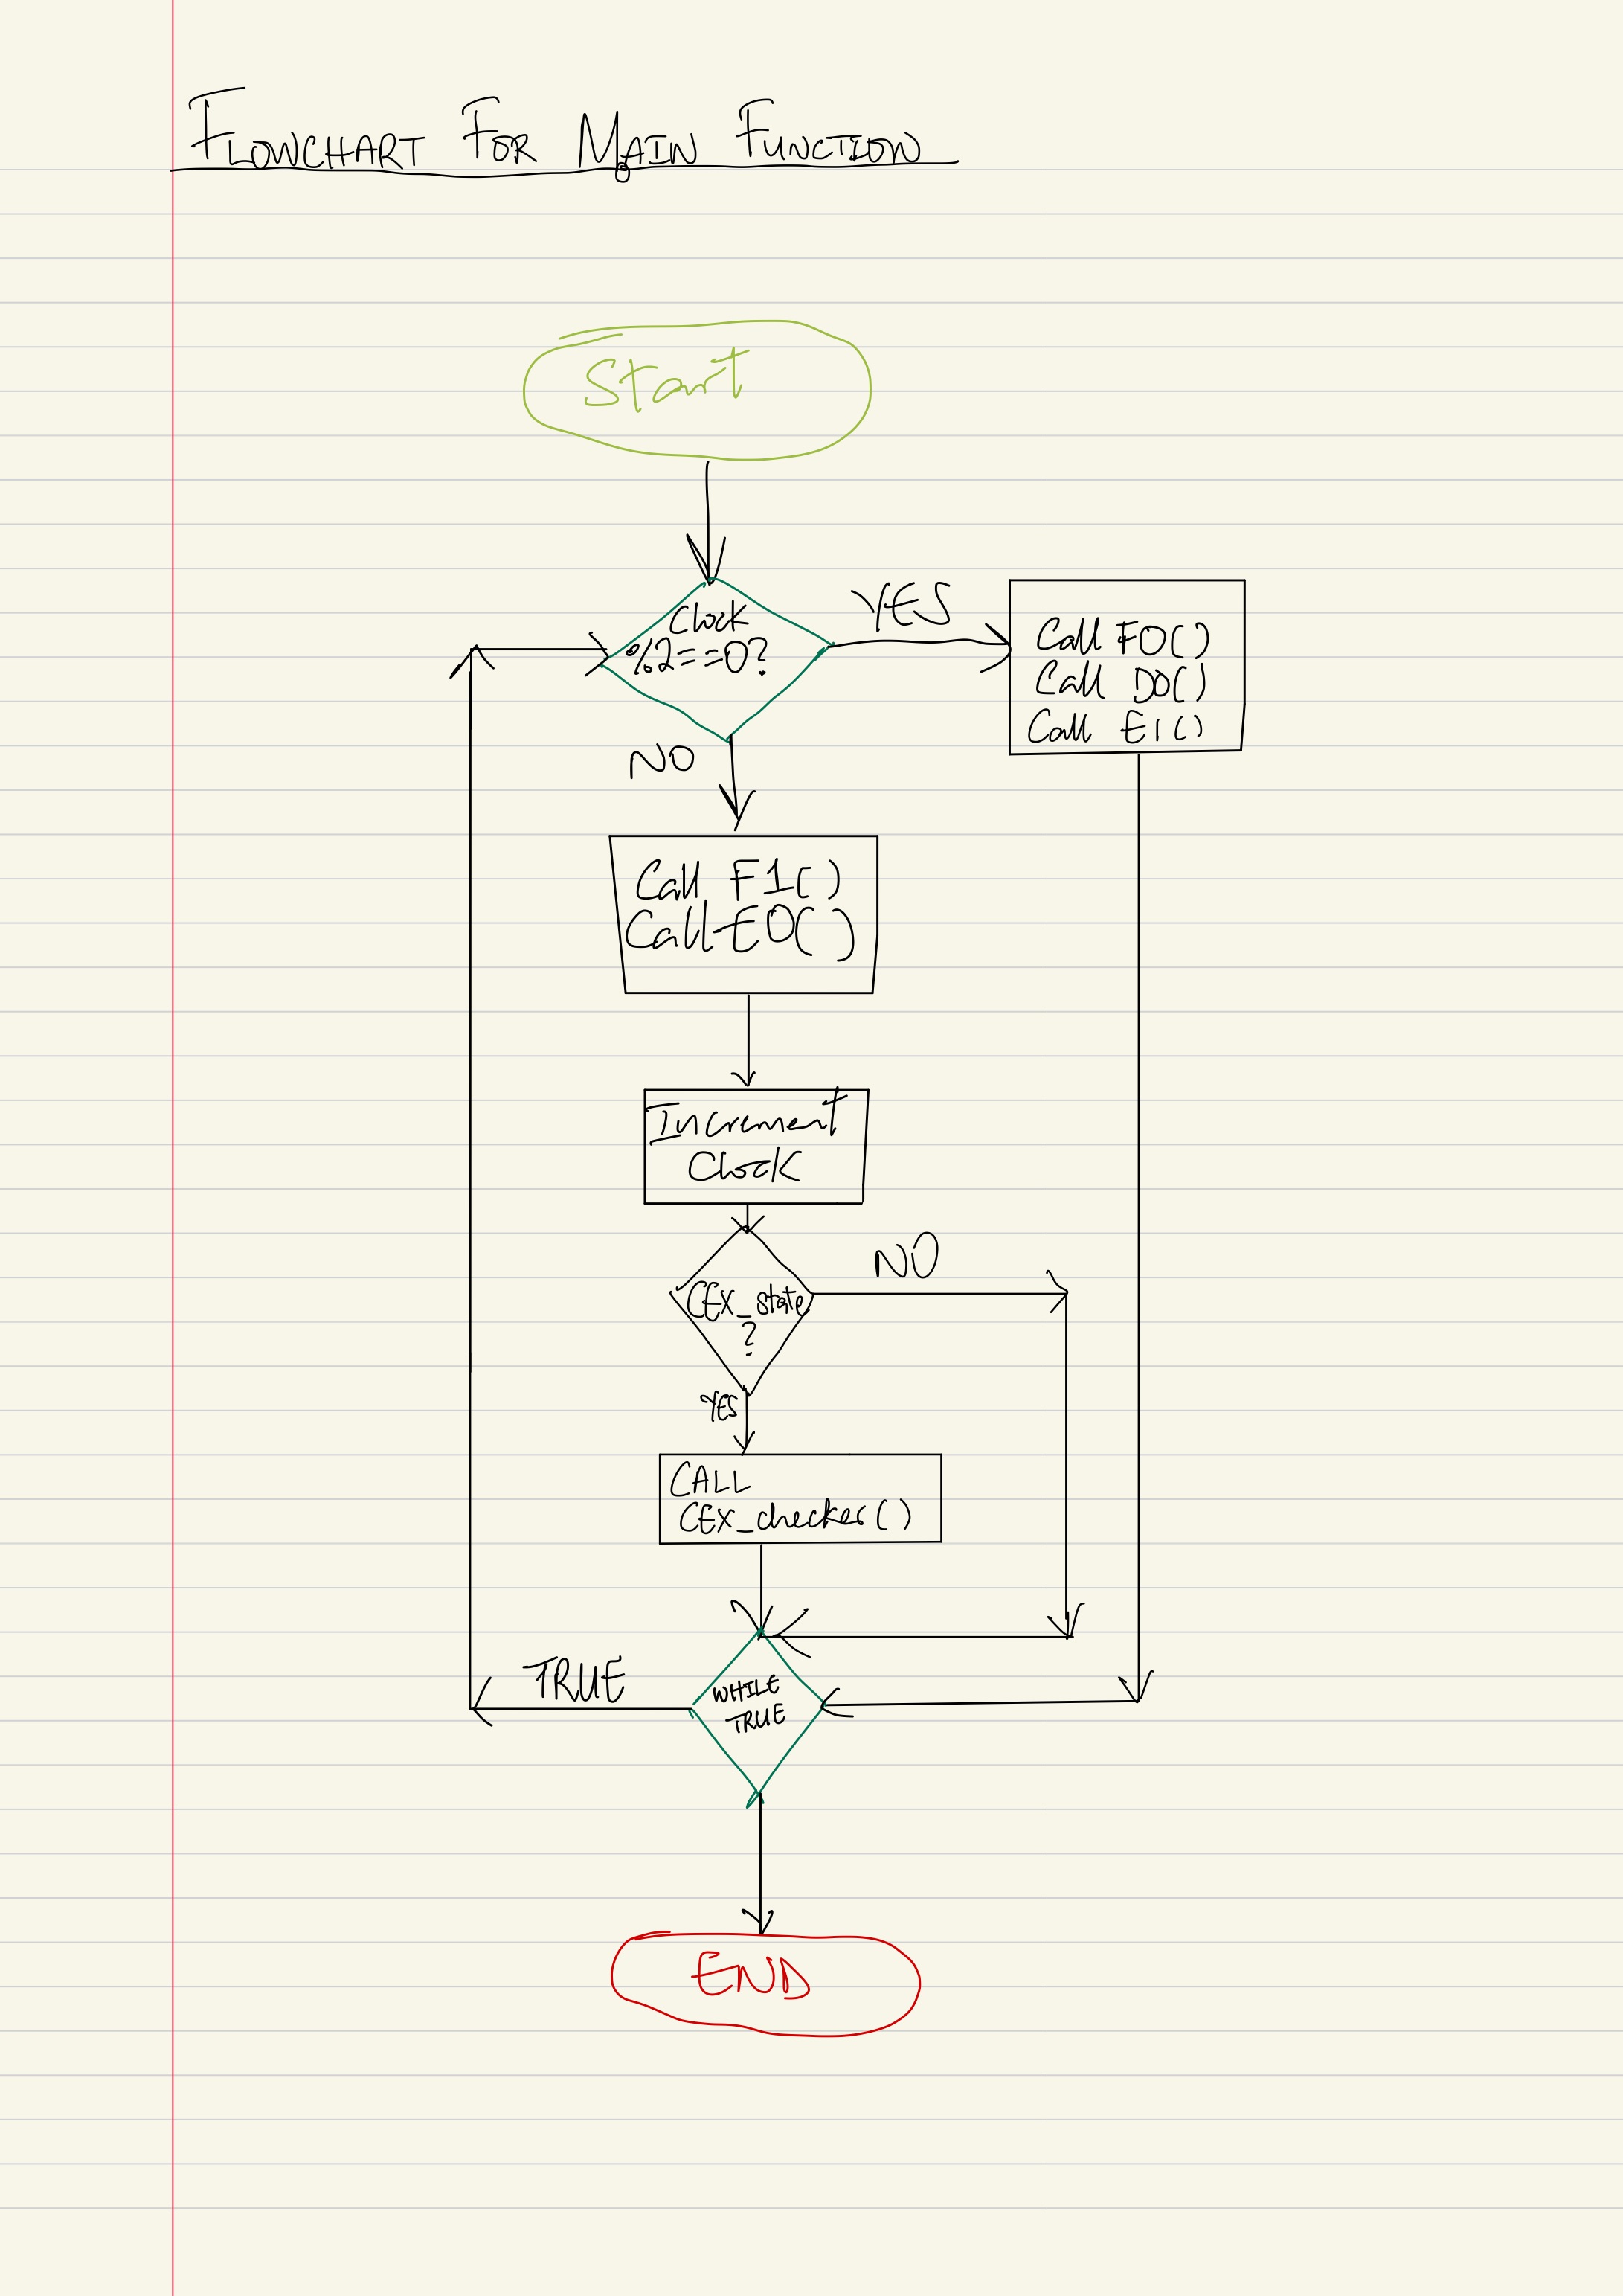 FLOWCHART FOR MAIN FUNCTION
Start
Clock
%2==0?
YES
Call F0()
Call D0()
Call E1()
NO
Call F1()
Call E0()
Increment
Clock
CEX_state
?
NO
YES
CALL
CEX_checker()
TRUE
WHILE
TRUE
END